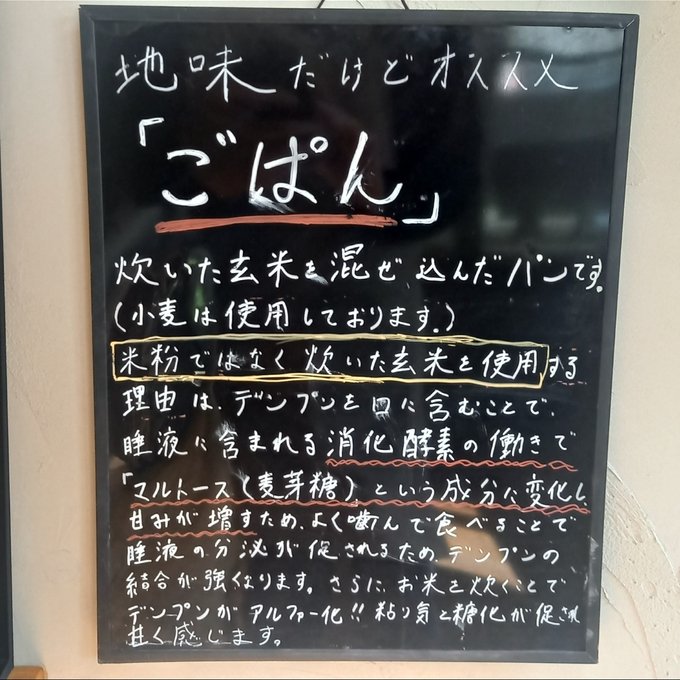 地味だけどオススメ
「ごぱん」
炊いた玄米を混ぜ込んだパンです。
(小麦は使用しております。)
米粉ではなく炊いた玄米を使用する
理由は、デンプンを口に含むことで、
唾液に含まれる消化酵素の働きで
「マルトース(麦芽糖)」という成分に変化し、
甘みが増すため、よく噛んで食べることで
唾液の分泌が促されるため、デンプンの
結合が強くなります。さらに、お米を炊くことで
デンプンがアルファー化!!粘り気と糖化が促され
甘く感じます。